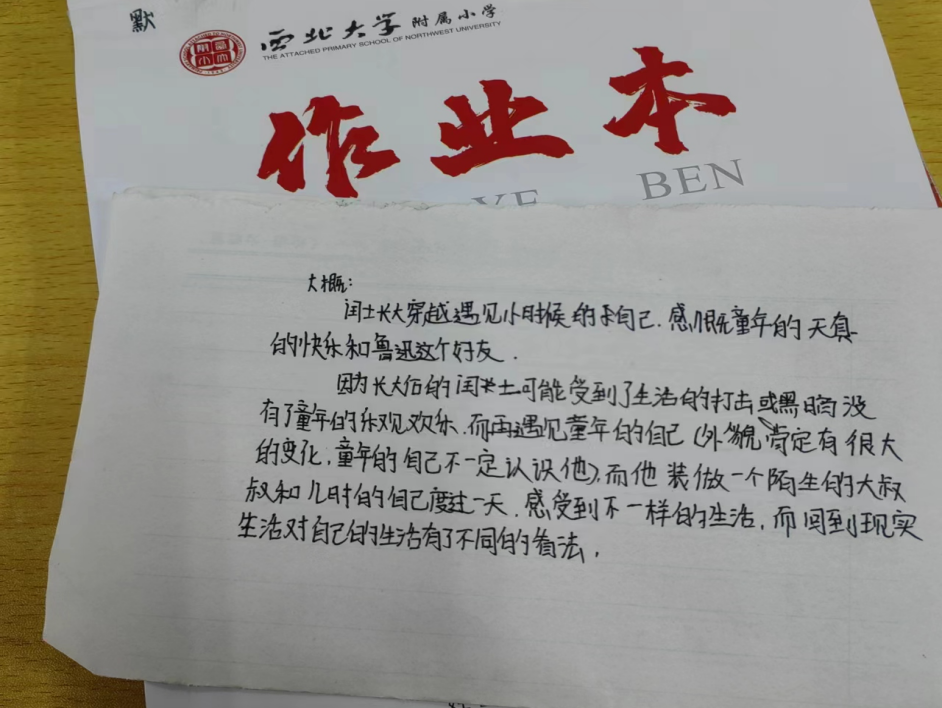 默
西北大学附属小学
THE ATTACHED PRIMARY SCHOOL OF NORTHWEST UNIVERSITY
作业本
YE BEN
大概:
闰土长大穿越遇见小时候的自己.感慨童年的天真
的快乐和鲁迅这个好友.
因为长大后的闰土可能受到了生活的打击或黑暗没
有了童年的乐观欢乐.而再遇见童年的自己(外貌肯定有很大
的变化,童年的自己不一定认识他),而他装做一个陌生的大叔
叔和儿时的自己度过一天.感受到不一样的生活,而回到现实
生活对自己的生活有了不同的看法,